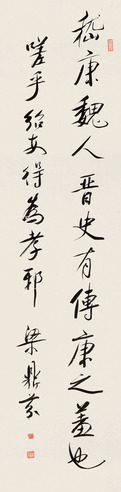 嵇康魏人晉史有傳康之羞也
嗟乎紹安得為孝邪　梁鼎芬